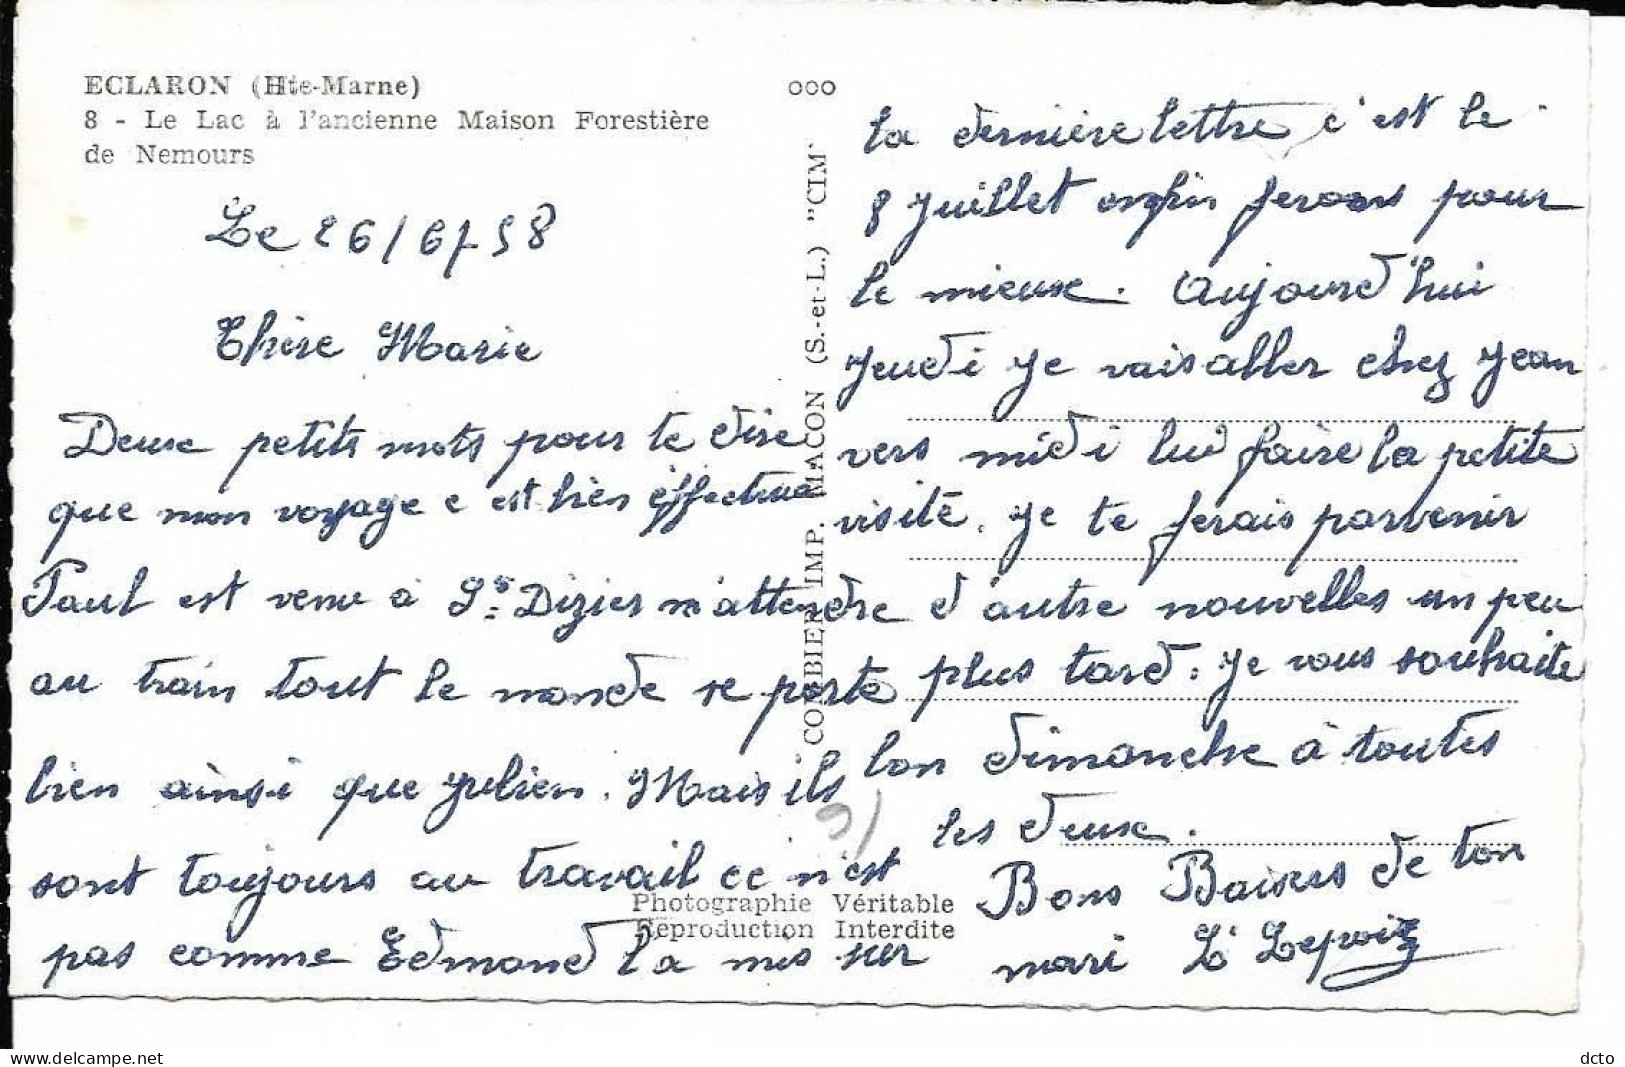 ECLARON (Hte-Marne)
8 - Le Lac à l'ancienne Maison Forestière
de Nemours
Le 26/6/58
Chère Marie
Deux petits mots pour te dire
que mon voyage c est bien effectué
Paul est venu à St Dizier m'attendre
au train tout le monde se porte
bien ainsi que Julien. Mais ils
sont toujours au travail ce n'est
pas comme Edmond l'a mis sur
ooo
COMBIER IMP. MACON (S.-et-L.) "CIM"
Photographie Véritable
Reproduction Interdite
la dernière lettre, c'est le
8 Juillet enfin ferons pour
le mieux. Aujourd'hui
Jeudi Je vais aller chez Jean
vers midi lui faire la petite
visite. Je te ferais parvenir
d'autre nouvelles un peu
plus tard. Je vous souhaite
bon dimanche à toutes
les deux.
Bons Baisers de ton
mari L Lepoix